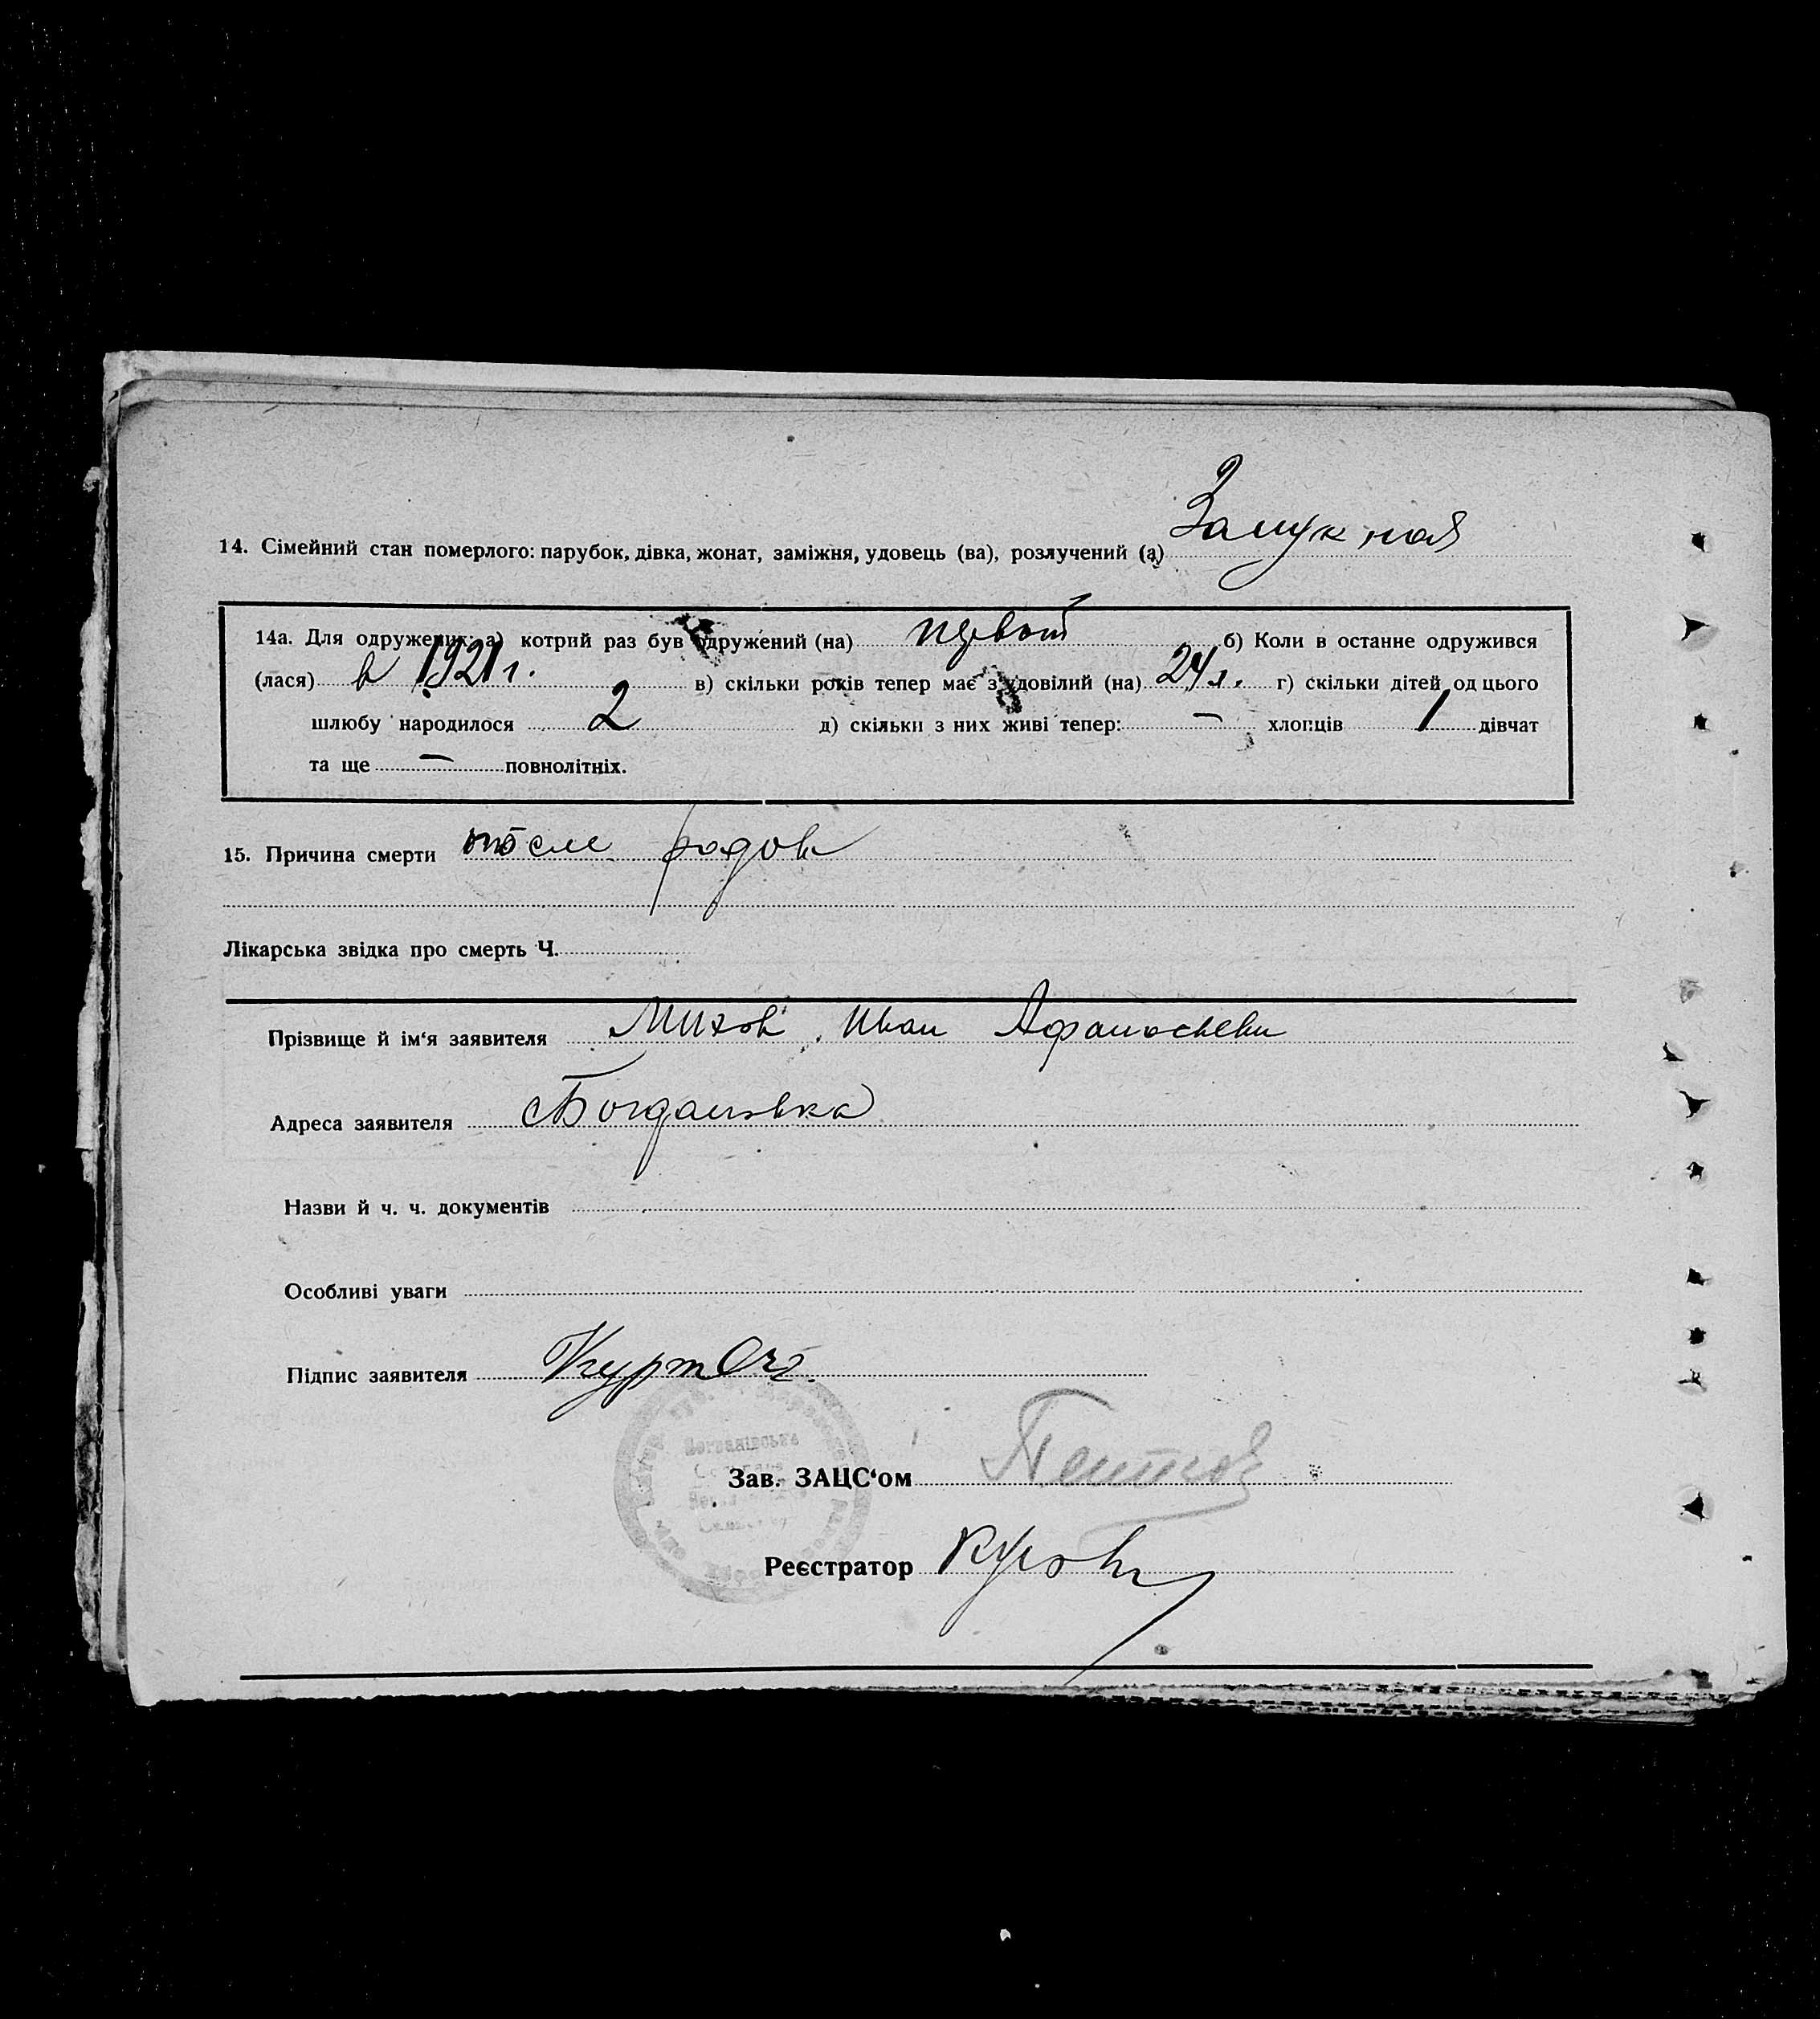 14. Сімейний стан померлого: парубок, дівка, жонат, заміжня, удовець (ва), розлучений (а) Замужная
14а. Для одружених: а) котрий раз був одружений (на) первый б) Коли в останне одружився
(лася) в 1921 г. в) скільки років тепер має з удовілий (на) 24 л. г) скільки дітей од цього
шлюбу народилося 2 д) скільки з них живі тепер: — хлопців 1 дівчат
та ще — повнолітніх.
15. Причина смерти после родов
Лікарська звідка про смерть Ч.
Прізвище й ім'я заявителя Иван
Адреса заявителя Богдановка
Назви й ч. ч. документів
Особливі уваги
Підпис заявителя
Зав. ЗАЦС'ом
Реєстратор